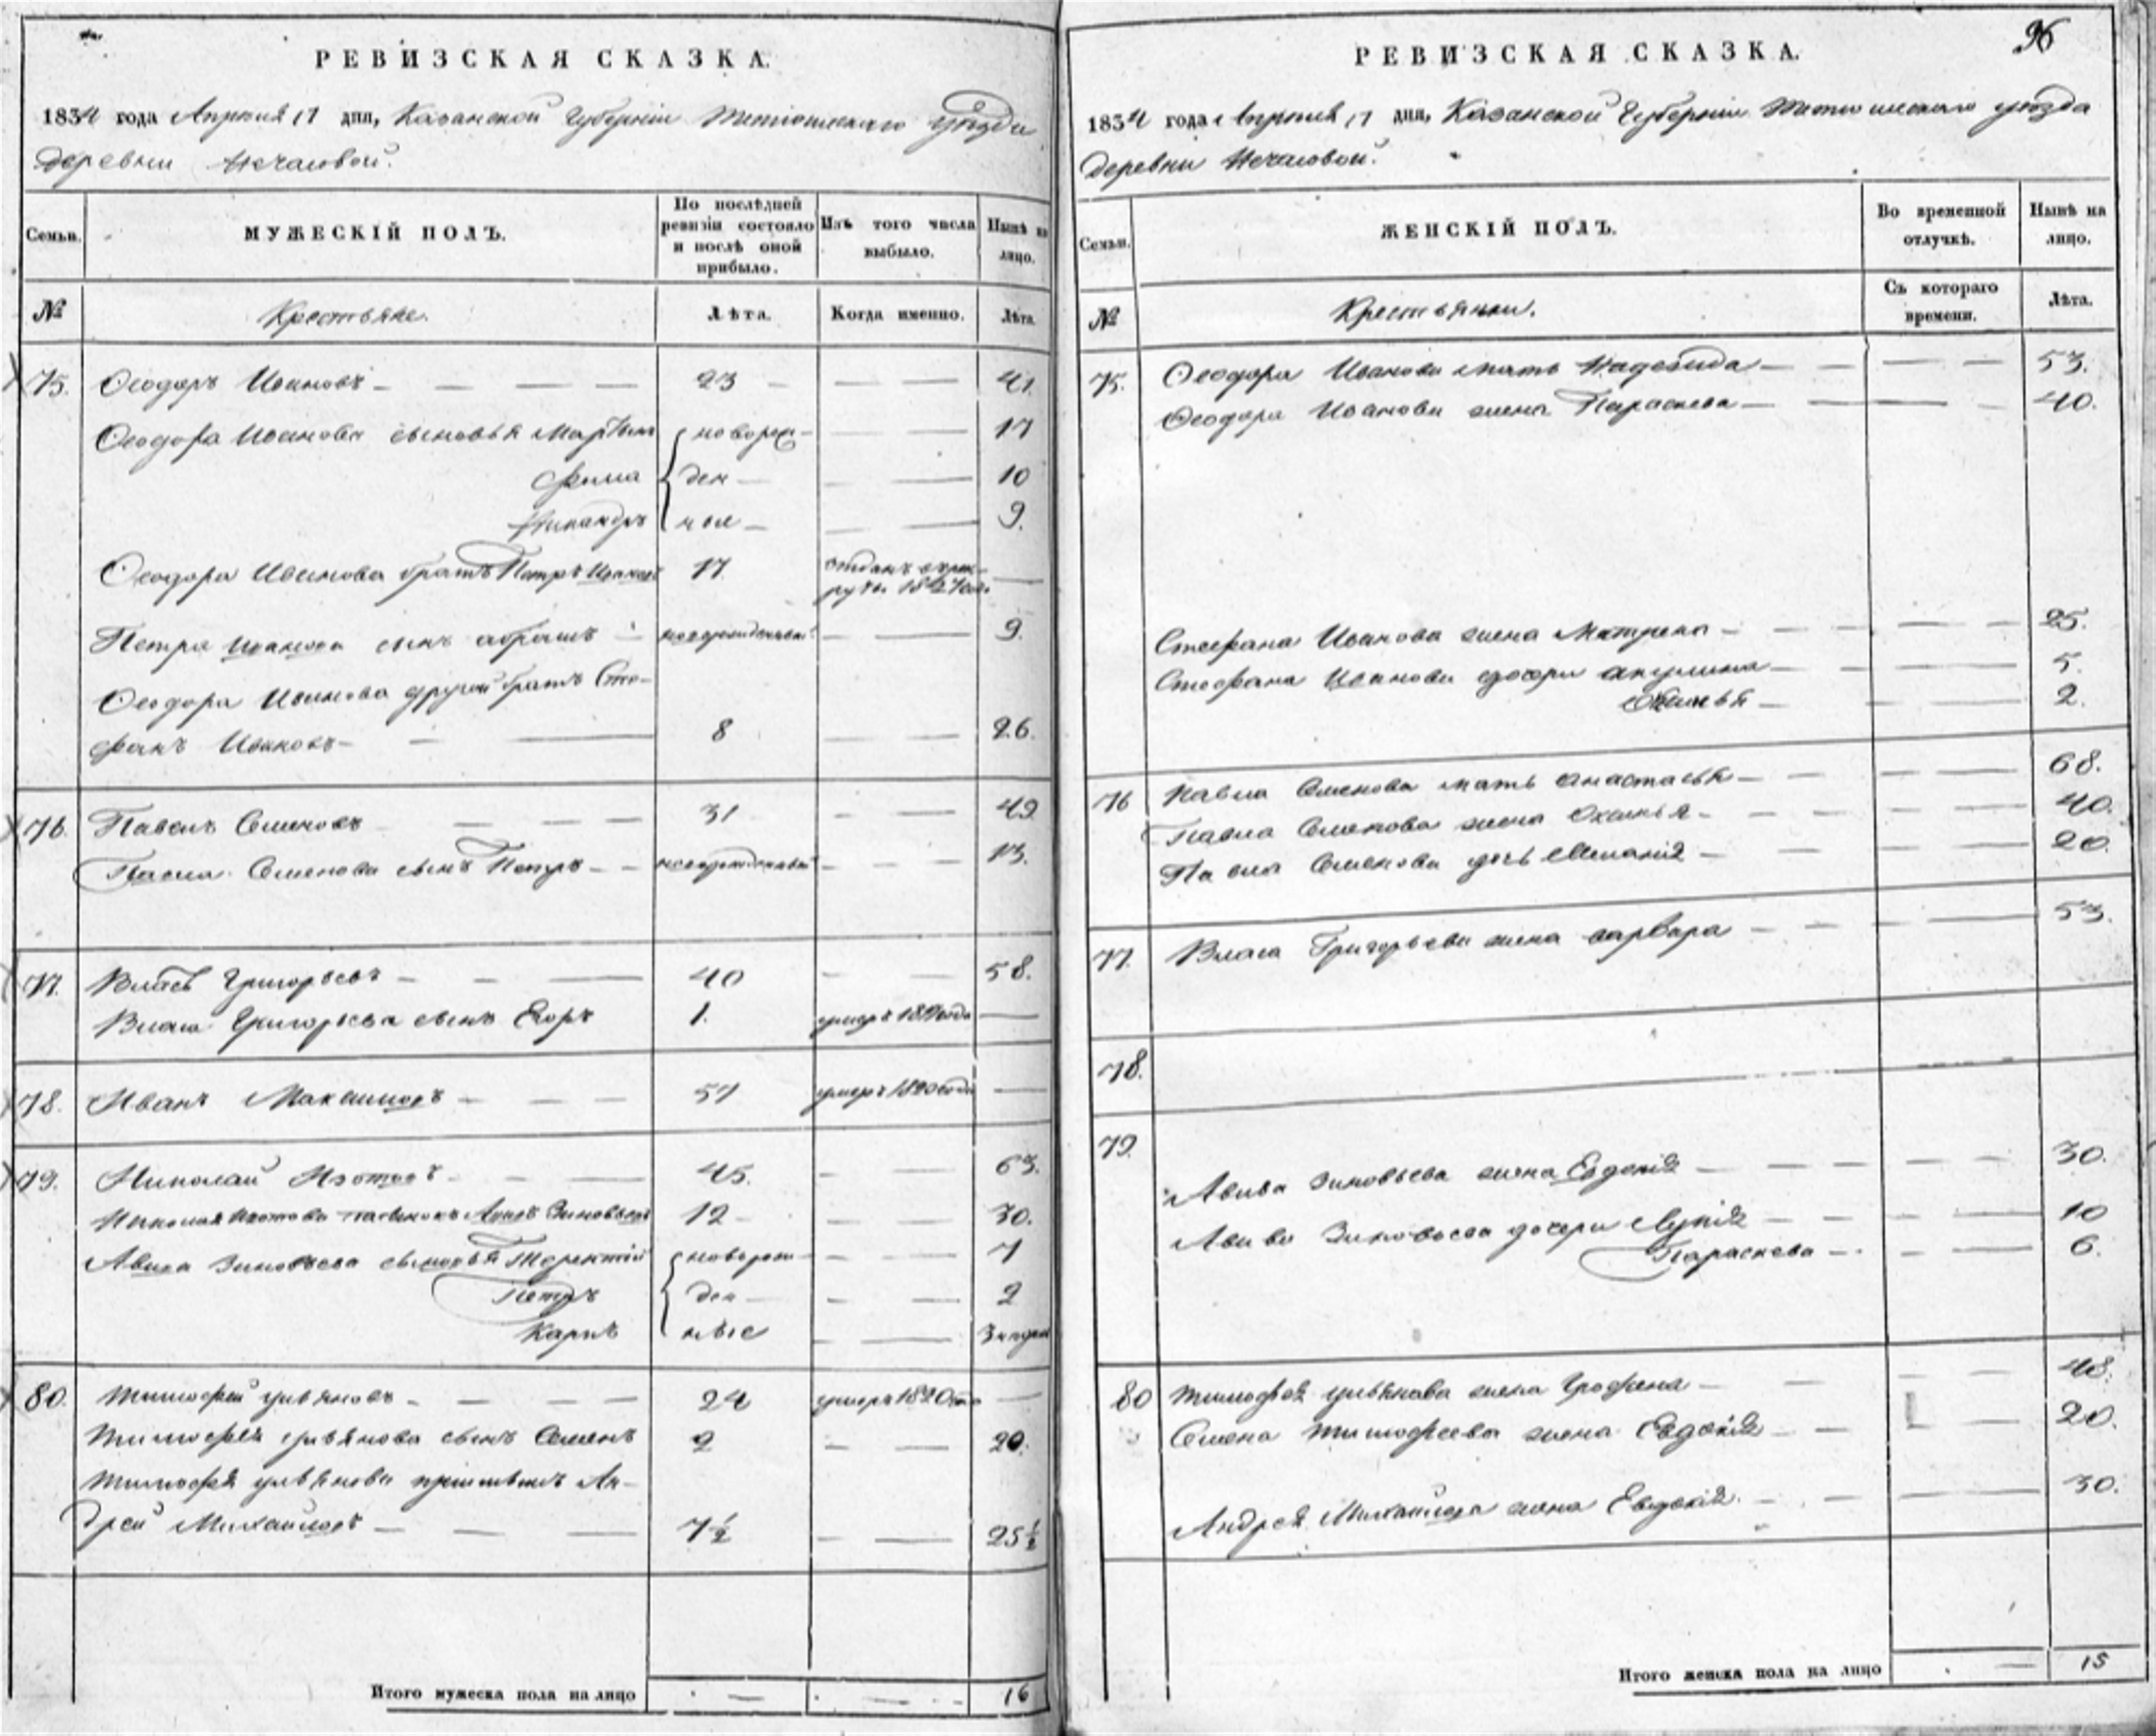 РЕВИЗСКАЯ СКАЗКА.
1834 года Апреля 17 дня, Казанской Губернiи Тетюшскаго уезда
деревни Нечасовой.
Семьи.
МУЖЕСКIЙ ПОЛЪ.
По послѣдней ревизiи состояло и послѣ оной прибыло.
Изъ того числа выбыло.
Нынѣ на лицо.
№
Крестьяне.
Лѣта.
Когда именно.
Лѣта.
75. Ѳеодоръ Ивановъ 23 41
Ѳеодора Иванова сыновья новорож 17
ден 10
ные 9.
Ѳеодора Иванова братъ Петръ Ивановъ 17
Петра Иванова сынъ новорожденный 9.
Ѳеодора Иванова другой братъ Сте-
фанъ Ивановъ 8 26.
76. Павелъ Семеновъ 31 49
Павла Семенова сынъ Петръ новорожденный 13.
77. Власъ Григорьевъ 40 58.
Власа Григорьева сынъ Егоръ 1. умеръ года
78. Иванъ Максимовъ 57 умеръ 1820 года
79. Николай Изотовъ 45. 63.
Николая Изотова пасынокъ Зиновьевъ 12 30.
Авива Зиновьева сыновья Терентiй новорож 7
Петръ ден 2
Карпъ ные
80. Тимофей Ульяновъ 24 умеръ 1820
Тимофея Ульянова сынъ Семенъ 2 20.
Тимофея Ульянова прiимышъ Ан-
дрей Михайловъ 7½ 25½
Итого мужеска пола на лицо 16
96
РЕВИЗСКАЯ СКАЗКА.
1834 года Апреля 17 дня, Казанской Губернiи Тетюшскаго уезда
деревни Нечасовой.
Семьи.
ЖЕНСКIЙ ПОЛЪ.
Во временной отлучкѣ.
Нынѣ на лицо.
№
Крестьянки.
Съ котораго времени.
Лѣта.
75. Ѳеодора Иванова мать Надежда 53.
Ѳеодора Иванова жена Параскева 40.
Стефана Иванова жена Матрена 25.
Стефана Иванова дочери Акулина 5.
2.
76 Павла Семенова мать Анастасья 68.
Павла Семенова жена 40.
Павла Семенова дочь 20.
77. Власа Григорьева жена Варвара 53.
78.
79.
Авива Зиновьева жена Евдокiя 30.
Авива Зиновьева дочери 10
Параскева 6.
80 Тимофея Ульянова жена 48.
Семена Тимофеева жена Евдокiя 20.
Андрея Михайлова жена Евдокiя 30.
Итого женска пола на лицо 15